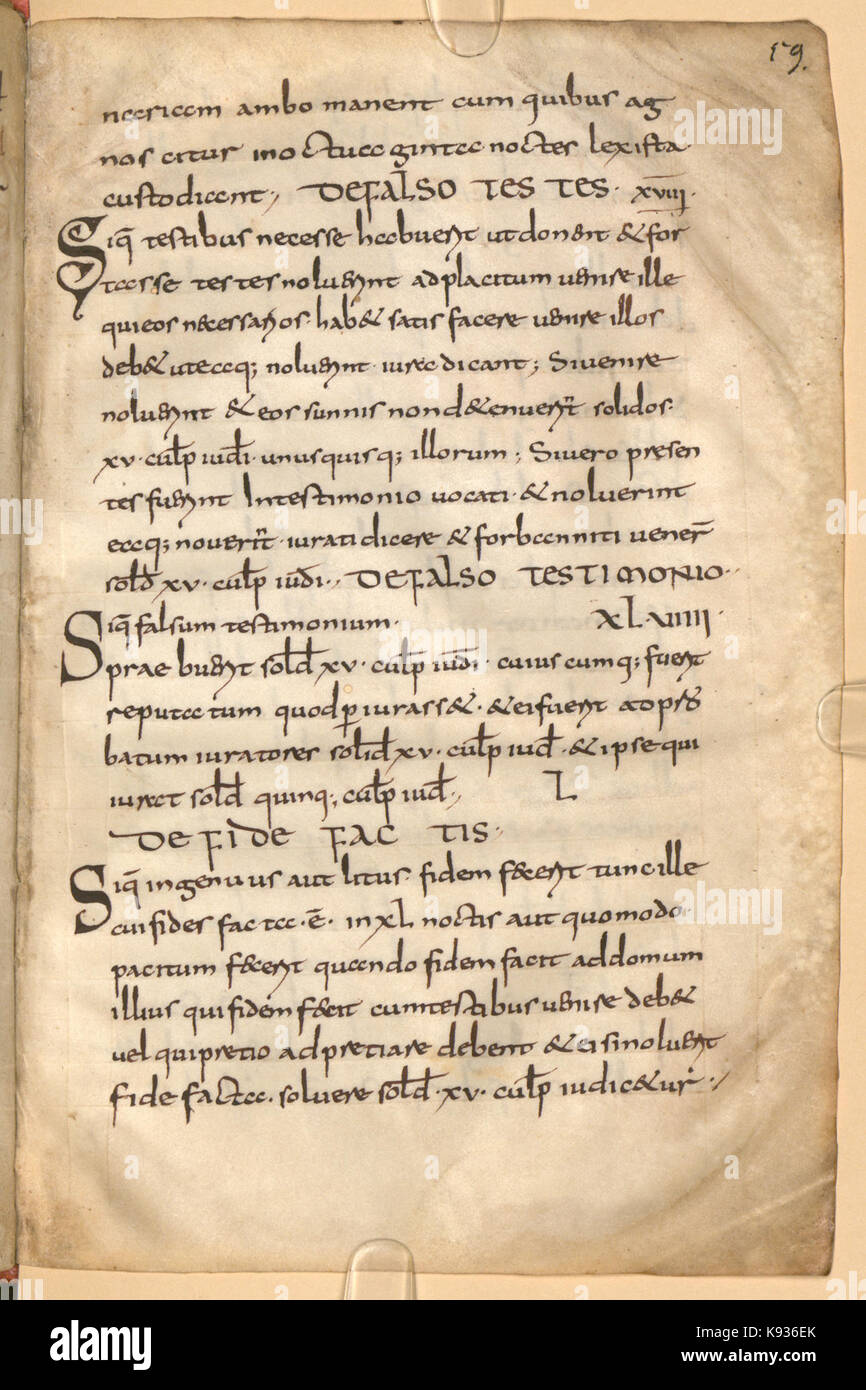 59.
necsicam ambo manent cum quibus ag
nos citus inoctuaginta noctes lex ista
custodicent, DEFALSO TESTES. xviiij.
Siq̄ testibus necesse habuer̄t ut donent & for
tasse testes noluer̄t ad placitum uenire ille
qui eos necessarios. hab& satis facere uenire illos
deb& ut eaq; noluer̄t iura dicant; Si uenire
noluer̄t & eos sunnis non d&enuer̄t solidos.
xv. cul̄p iud̄i. unusquisq; illorum; Si uero presen
tes fuer̄nt In testimonio uocati. & noluerint
eaq; nouerīt. iurati dicere & forbanniti uener̄
sol̄d xv. cul̄p iud̄i., DEFALSO TESTIMONIO.
Siq̄ falsum testimonium. XL.VIIII.
prae buer̄t sol̄d xv. cul̄p iud̄i. cuius cumq; fuer̄t
reputatum quod p̄iurass&. & ei fuer̄t
batum iuratores solid̄ xv. cul̄p iud̄. & ipse qui
iurat sol̄d quinq; cul̄p iud̄., L
DE FIDE FACTIS.
Siq̄ ingenuus aut litus. fidem fecer̄t tunc ille
cui fides facta. ē. in XL noctis aut quomodo
pacitum fecer̄t quando fidem facit ad domum
illius qui fidem fecit cum testibus uenire deb&
uel qui pretio adpretiare debent & ei si noluer̄t
fide facta. soluere sol̄d. xv. cul̄p iudic&ur.,
alamy
Image ID: K936EK
www.alamy.com